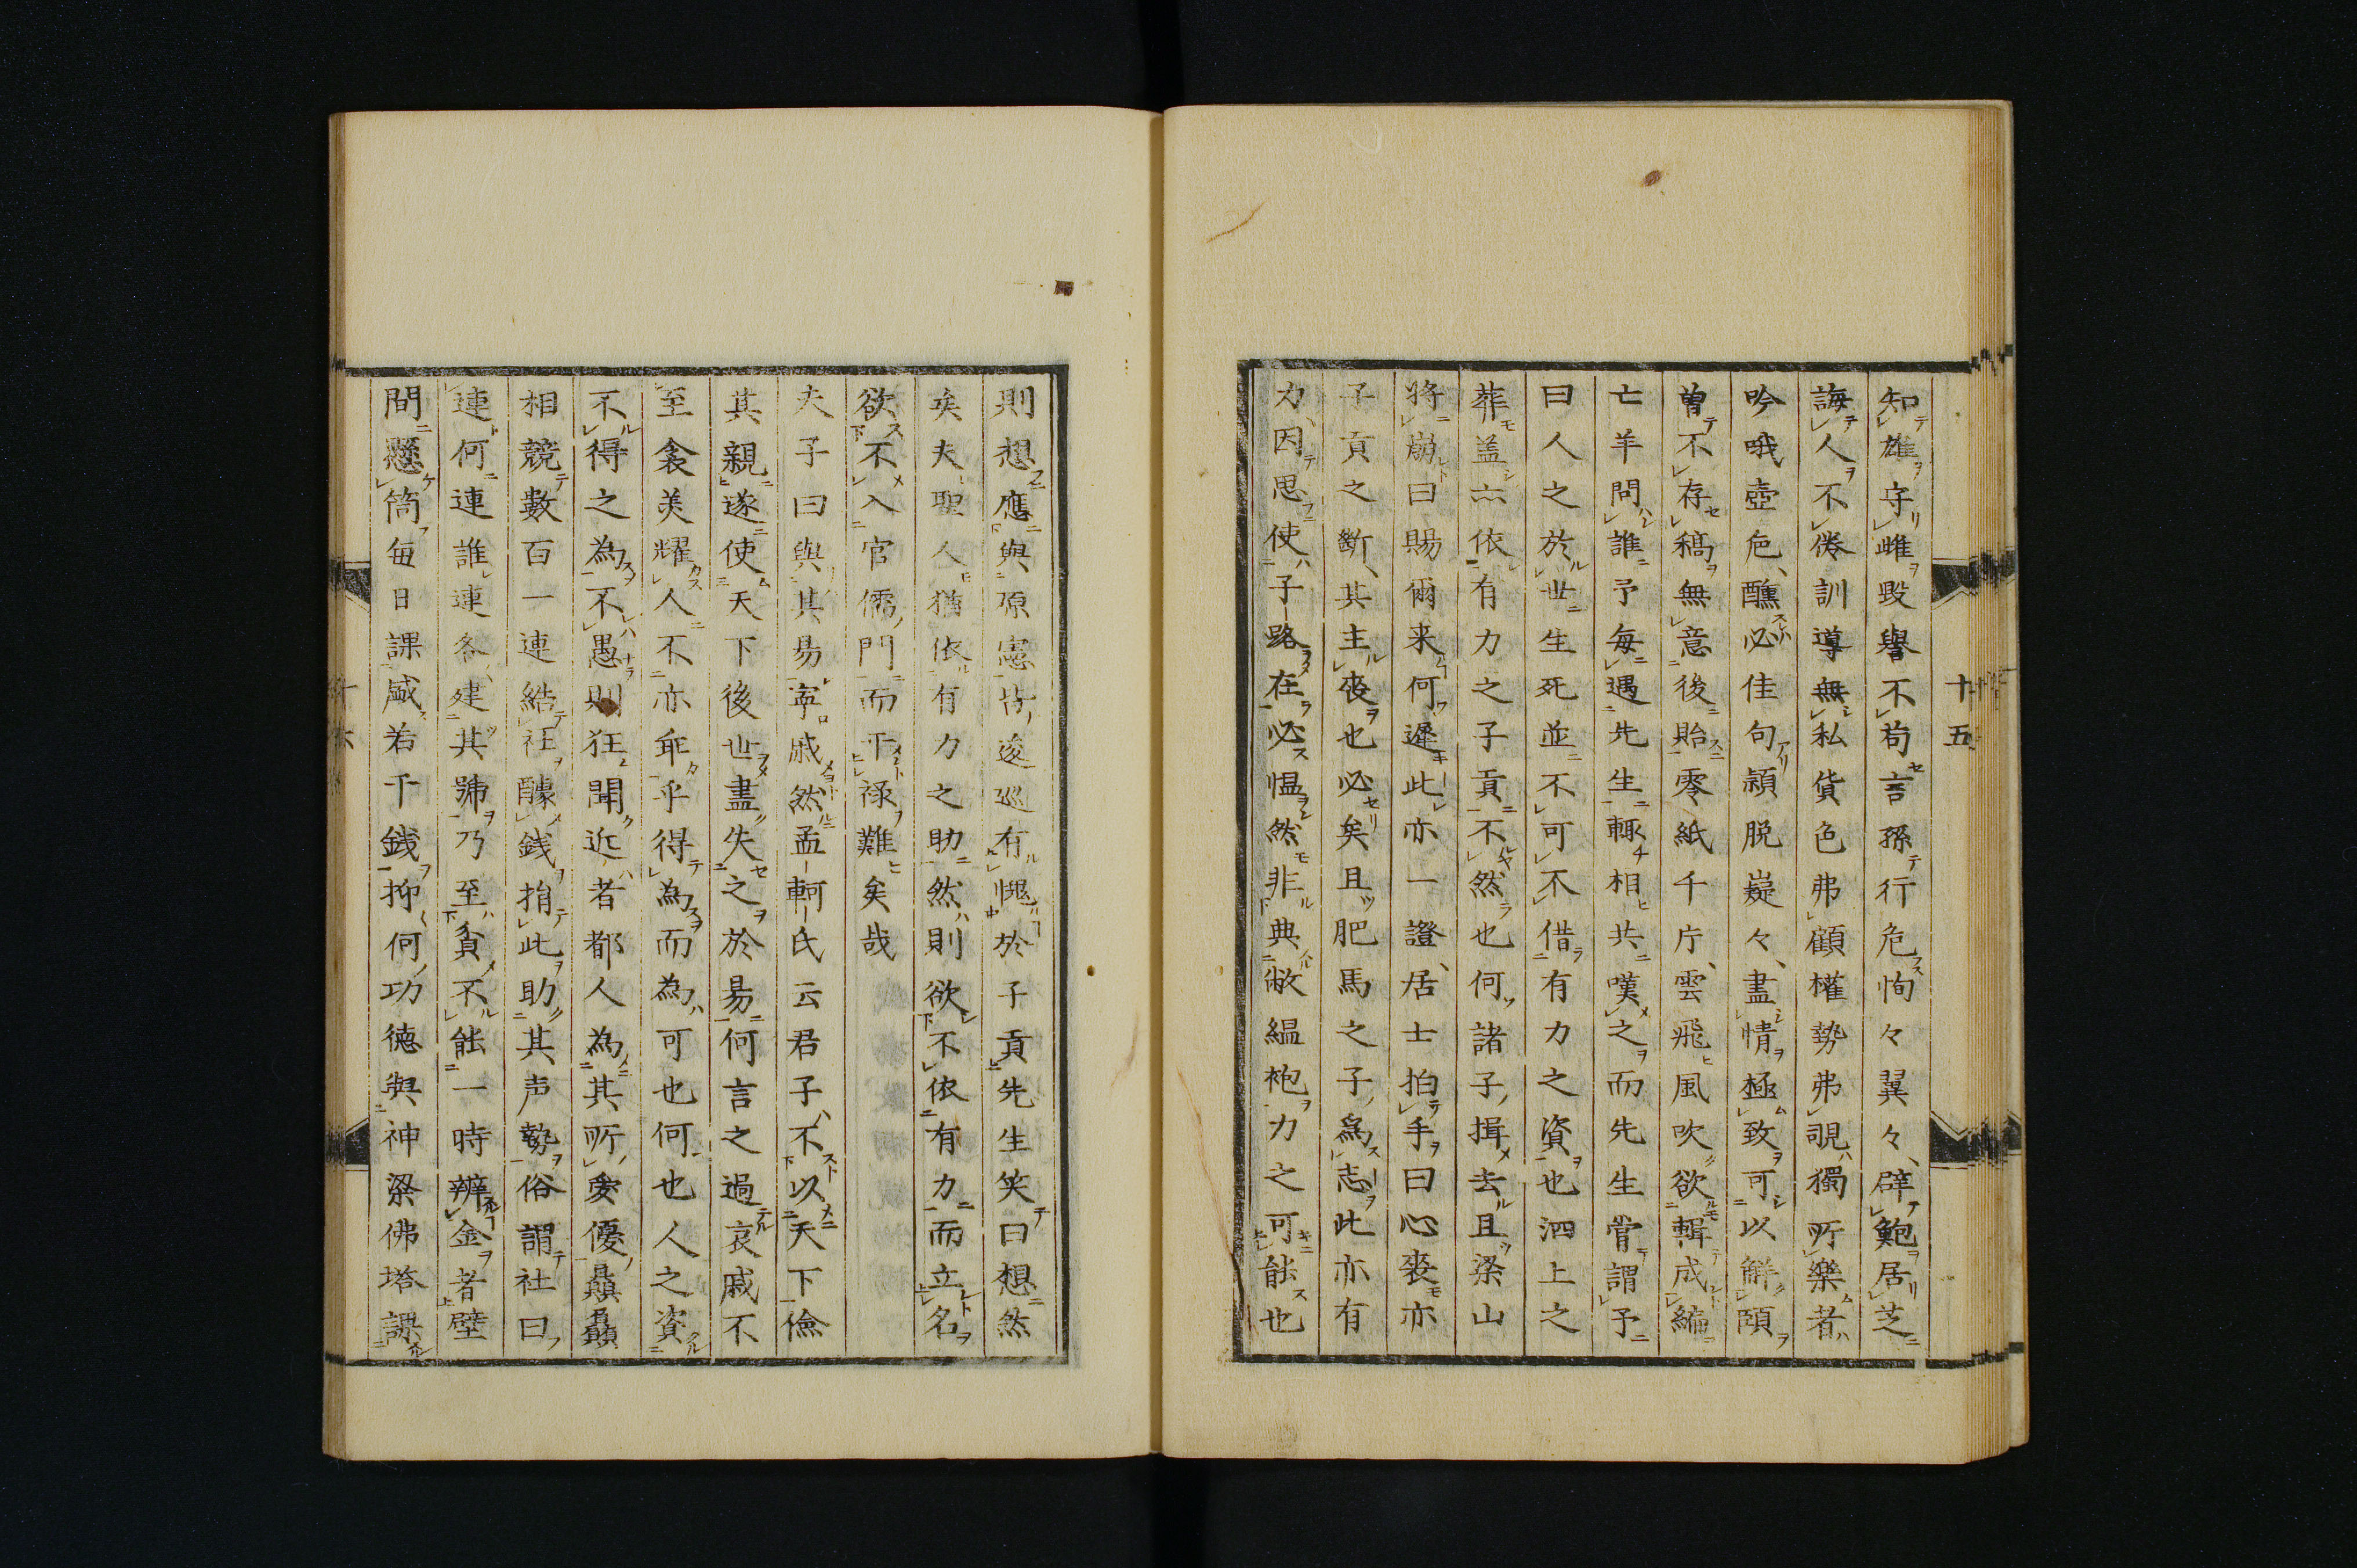 十五
知雄守雌毀譽不苟言孫行危恂々翼々辟鮑居芝
誨人不倦訓導無私貨色弗顧權勢弗覬獨所樂者
吟哦壺巵醺必佳句穎脱嶷々盡情極致可以解頤
曽不存稿無意後貽零紙千片雲飛風吹欲輯成編
亡羊問誰予毎遇先生輒相共嘆之而先生甞謂予
曰人之於世生死並不可不借有力之資也泗上之
葬盖亦依有力之子貢不然也何諸子揖去且梁山
將崩曰賜爾来何遲此亦一證居士拍手曰心喪亦
子貢之斷其主喪也必矣且肥馬之子爲志此亦有
力因思使子路在必愠然非典敝緼袍力之可能也
則想應與原憲皆逡巡有愢於子貢先生笑曰想然
矣夫聖人猶依有力之助然則欲不依有力而立名
欲不入官儒門而干禄難矣哉
夫子曰與其易寧戚然孟軻氏云君子不以天下儉
其親遂使天下後世盡失之於易何言之過哀戚不
至衾美耀人不亦乖乎得為而為可也何也人之資
不得之為不愚則狂聞近者都人為其所愛優贔贔
相競數百一連結社醵銭捐此助其声勢俗謂社曰
連何連誰連各建其號乃至貧不能一時辨金者壁
間懸筒毎日課鹹若干銭抑何功德與神梁佛塔課
十六